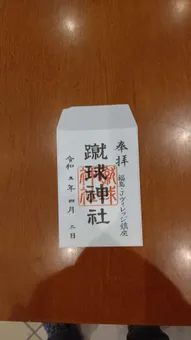 奉拝
福島・Jヴィレッジ鎮座
蹴球神社
令和五年四月二日